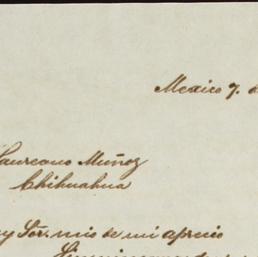 Mexico 7. d
Laureano Muñoz
Chihuahua
y Sör. mio de mi aprecio